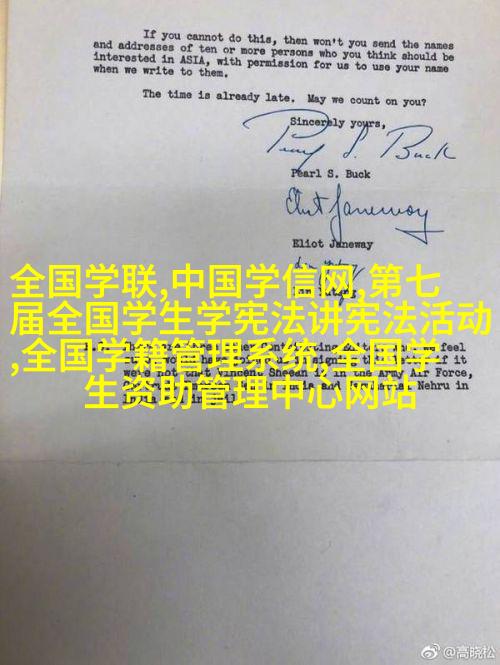 If you cannot do this, then won't you send the names
and addresses of ten or more persons who you think should be
interested in ASIA, with permission for us to use your name
when we write to them.
The time is already late. May we count on you?
Sincerely yours,
Pearl S. Buck
Pearl S. Buck
Eliot Janeway
Eliot Janeway
全国学联,中国学信网,第七
届全国学生学宪法讲宪法活动
,全国学籍管理系统,全国学
生资助管理中心网站
if it
were not that Vincent Sheean is in the Army Air Force,
and Nehru in
@高晓松